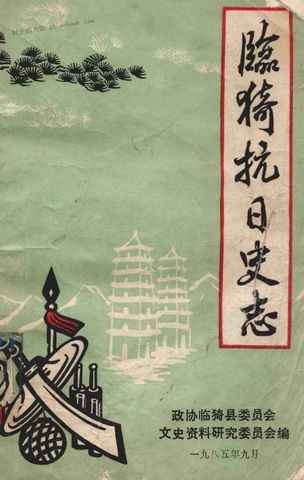 臨猗抗日史志
政协临猗县委员会
文史资料研究委员会编
一九八五年九月